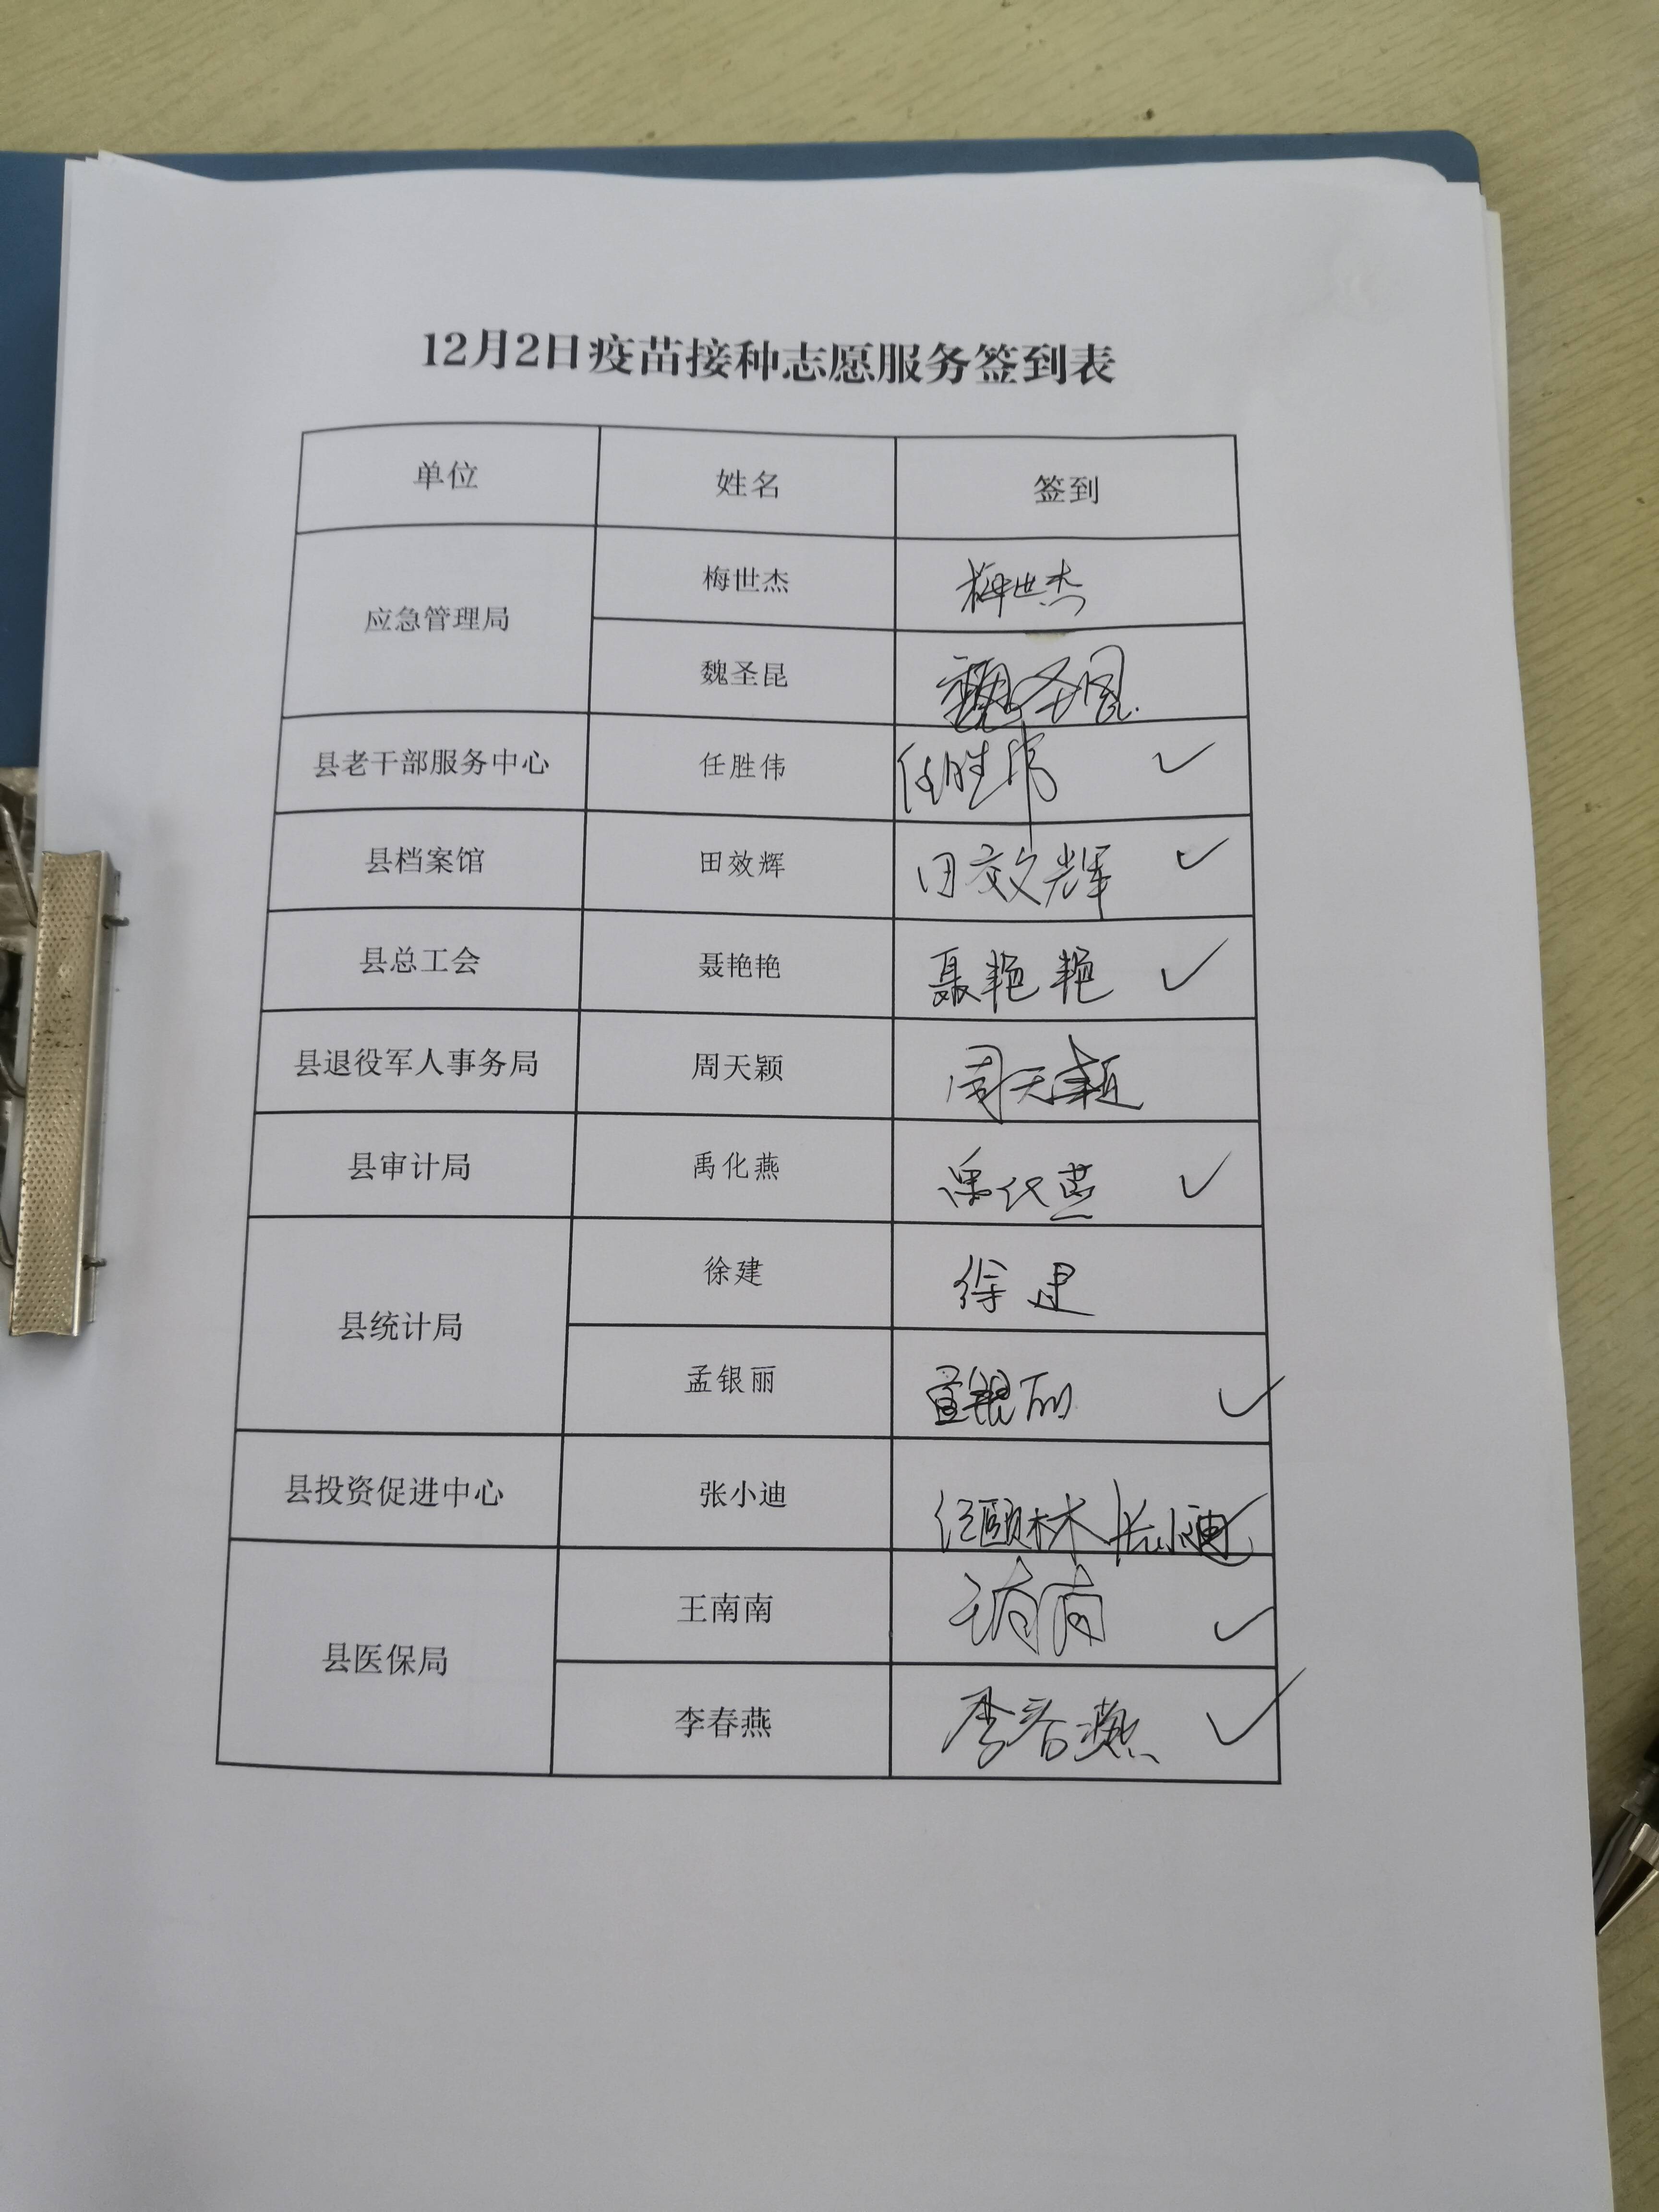 12月2日疫苗接种志愿服务签到表
单位 姓名 签到
应急管理局 梅世杰 梅世杰
魏圣昆 魏圣昆
县老干部服务中心 任胜伟 任胜伟 ✓
县档案馆 田效辉 田效辉 ✓
县总工会 聂艳艳 聂艳艳 ✓
县退役军人事务局 周天颖 周天颖
县审计局 禹化燕 禹化燕 ✓
县统计局 徐建 徐建
孟银丽 孟银丽 ✓
县投资促进中心 张小迪 张小迪
县医保局 王南南 王南南 ✓
李春燕 李春燕 ✓